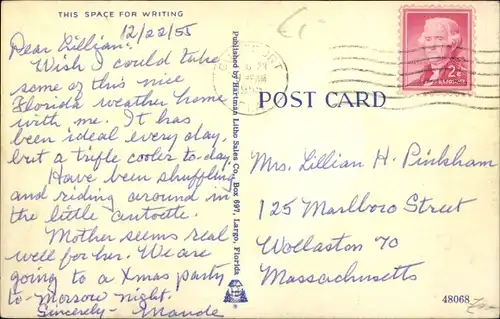 THIS SPACE FOR WRITING
12/22/55
Dear Lillian:
Wish I could take
some of this nice
Florida weather home
with me. It has
been ideal every day,
but a trifle cooler to-day
Have been shuffling
and riding around in
the little autoette.
Mother seems real
well for her. We are
going to a Xmas party
to-morrow night.
Sincerely - Maude
Published by Hartman Litho Sales Co., Box 697, Largo, Florida
POST CARD
1955
2¢
Mrs. Lillian H. Pinkham
125 Marlboro Street
Wollaston 70
Massachusetts
48068